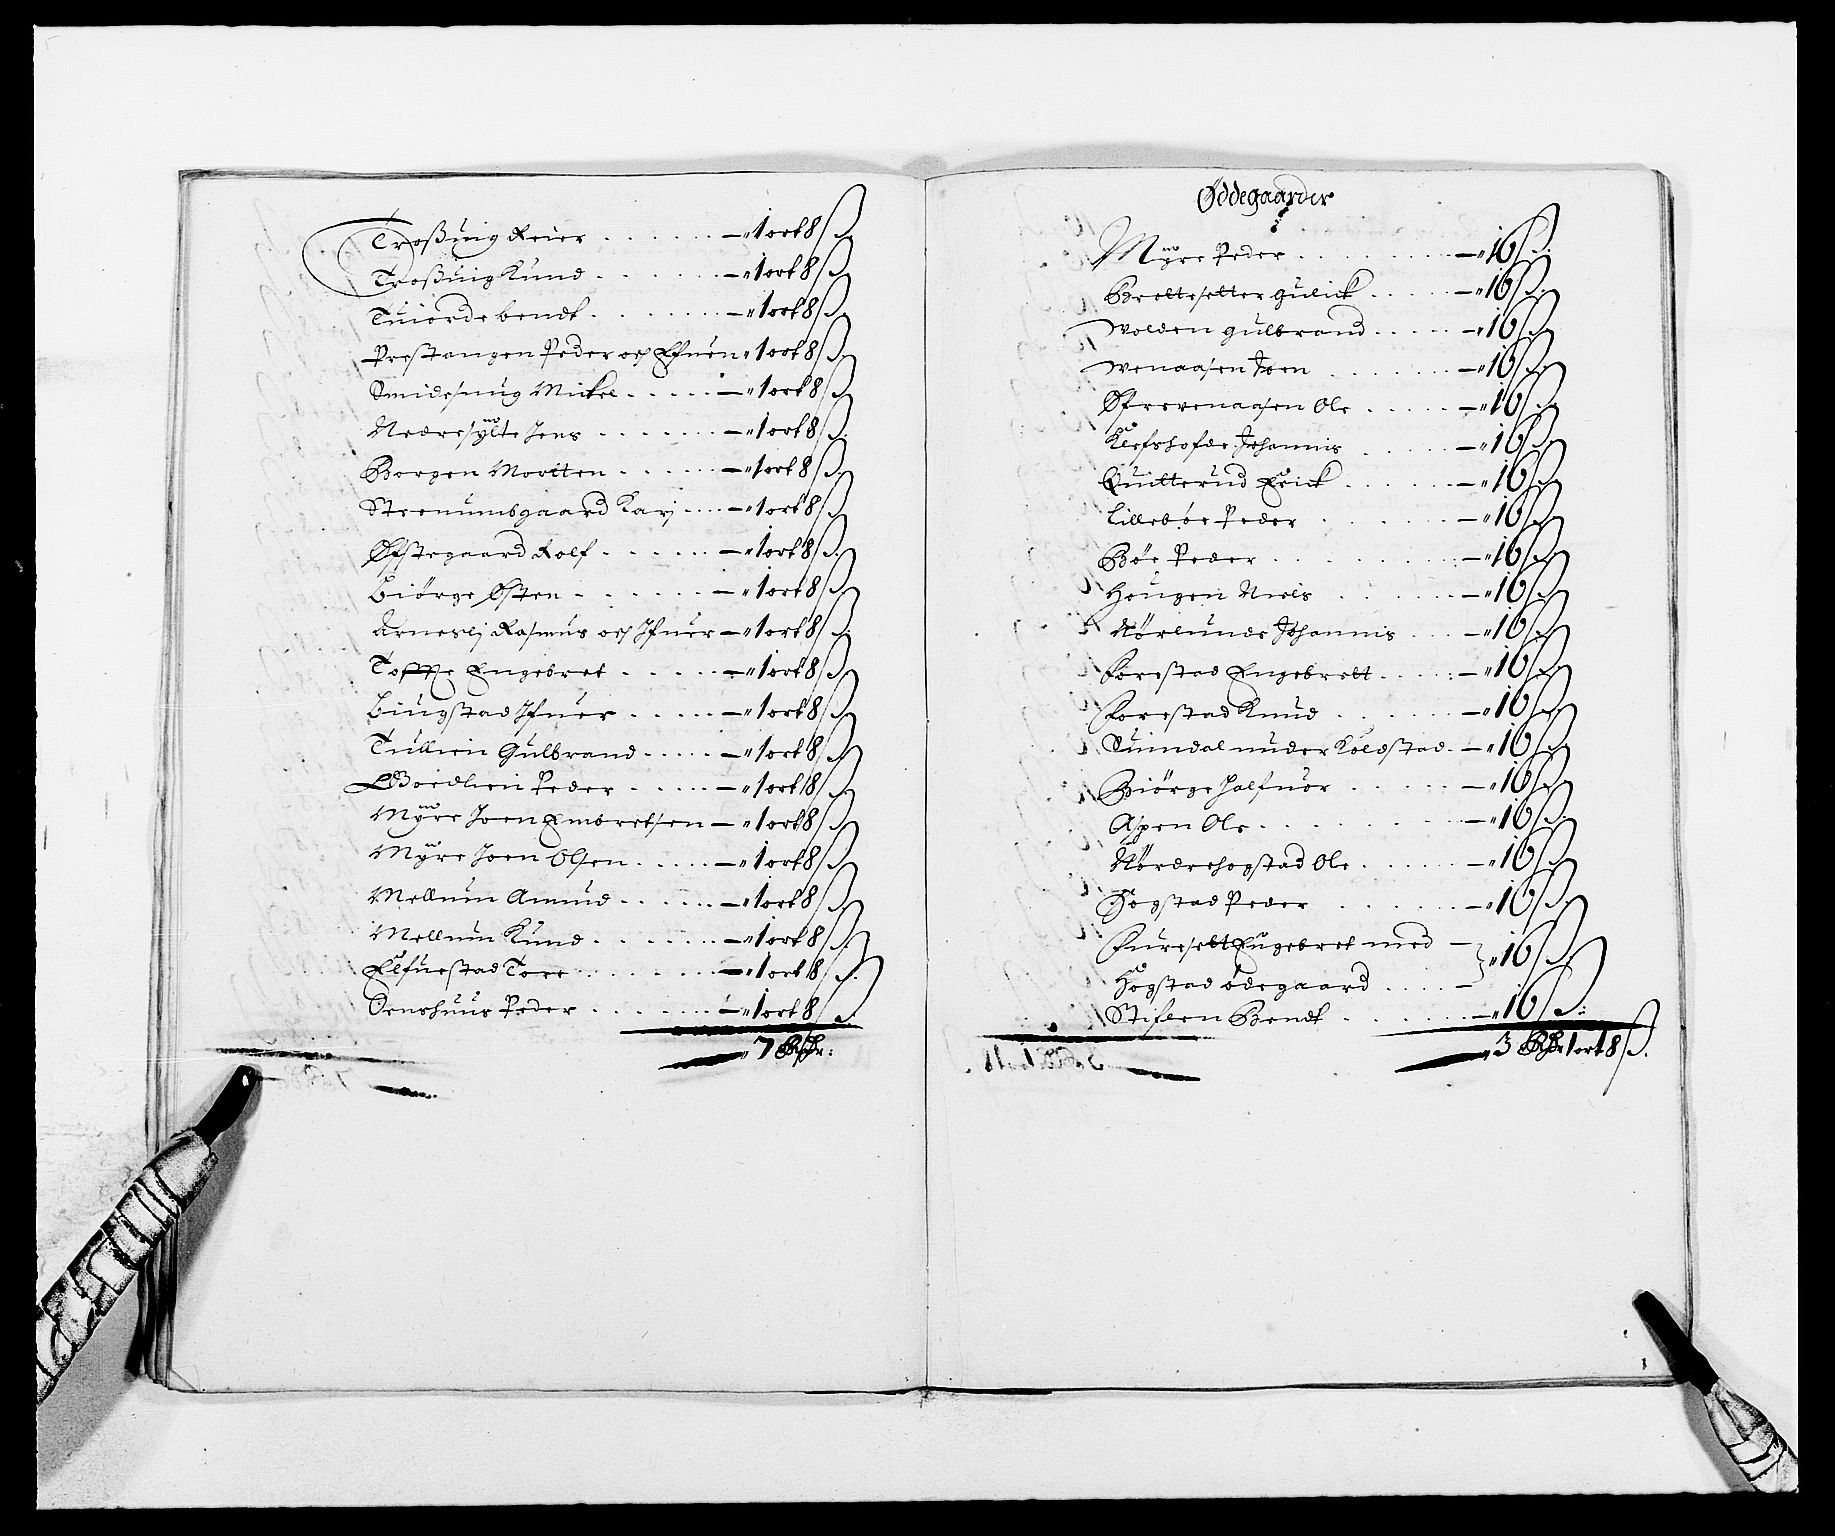 Troßuig Reier . . . . . . — „ 1 ort 8 ß.
Troßuig Knud . . . . . . — „ 1 ort 8 ß.
Tuiorde bendt . . . . . . — „ 1 ort 8 ß.
Prestangen Peder och Efuen „ 1 ort 8 ß.
Smidesuig Mickel . . . . . — „ 1 ort 8 ß.
Nedresÿlte Jens . . . . . . — „ 1 ort 8 ß.
Borgen Mortten . . . . . — „ 1 ort 8 ß.
Strenumbsgaard Karj . . . — „ 1 ort 8 ß.
Øfstegaard Rolf . . . . . . — „ 1 ort 8 ß.
Biörge Østen . . . . . . — „ 1 ort 8 ß.
Arneslj Rasmus och Ifuer — „ 1 ort 8 ß.
Toffte Engebret . . . . . — „ 1 ort 8 ß.
Biugstad Ifuer . . . . . — „ 1 ort 8 ß.
Tullien Gulbrand . . . . . — „ 1 ort 8 ß.
Boedlien Peder . . . . . — „ 1 ort 8 ß.
Mÿre Joen Embretsen — „ 1 ort 8 ß.
Mÿre Joen Olsen . . . . . — „ 1 ort 8 ß.
Mellum Amund . . . . . — „ 1 ort 8 ß.
Mellum Knud . . . . . . — „ 1 ort 8 ß.
Elfuestad Tore . . . . . . — „ 1 ort 8 ß.
Ornshuus Peder . . . . . . — „ 1 ort 8 ß.
„ 7 Rdr:
Øddegaarder
Mÿre Peder . . . . . . . — „ 16 ß.
Broltesetter gulick . . . . . — „ 16 ß.
wolden gulbrand . . . . . — „ 16 ß.
wenaasen Joen . . . . . . — „ 16 ß.
Øfrewenaasen Ole . . . . . — „ 16 ß.
Klefshofde Johannis . . . . — „ 16 ß.
Quitterud Erick . . . . . . — „ 16 ß.
Lillebøe Peder . . . . . . — „ 16 ß.
Bøe Peder . . . . . . . . — „ 16 ß.
Hougen Niels . . . . . . — „ 16 ß.
Nörlunde Johannis . . . — „ 16 ß.
Forestad Engebrett . . . . — „ 16 ß.
Forestad Knud . . . . . . — „ 16 ß.
Suindal under Kolbstad . — „ 16 ß.
Biörge Halfuor . . . . . . — „ 16 ß.
Aspen Ole . . . . . . . . — „ 16 ß.
Nördrehogstad Ole . . . . . — „ 16 ß.
Hogstad Peder . . . . . . — „ 16 ß.
Furesett Engebret med —
Hogstad ödegaard . . . . — „ 16 ß.
Stiflen Bendt . . . . . . — „ 16 ß.
„ 3 Rdr 1 ort 8 ß.